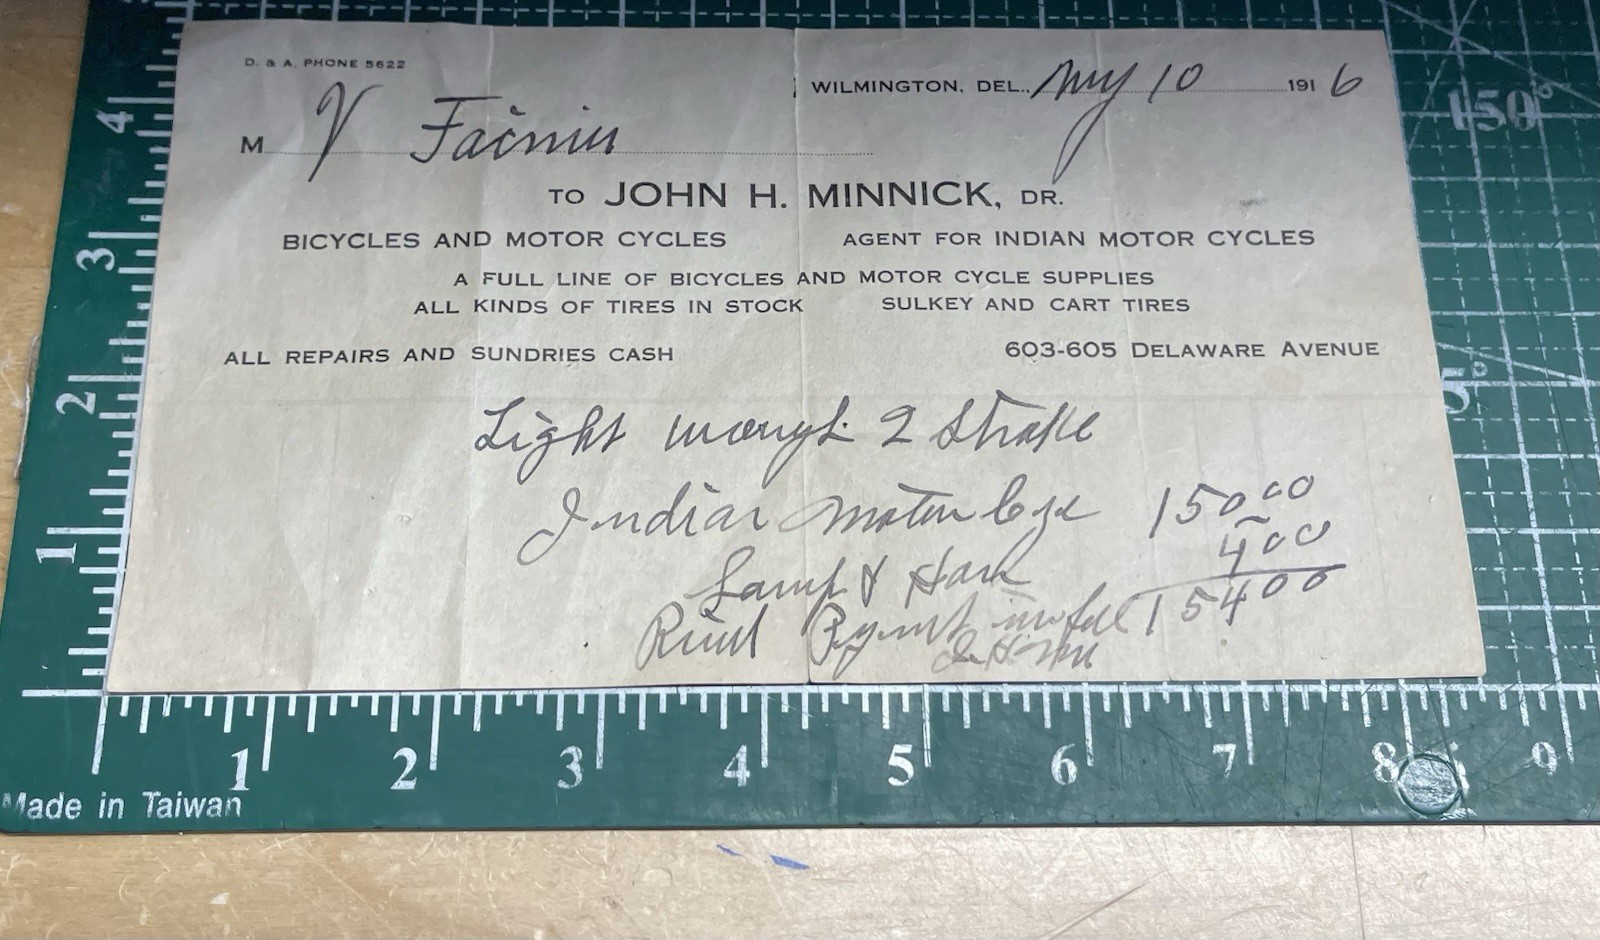 D. & A. PHONE 5622
WILMINGTON, DEL., My 10 1916
M V
TO JOHN H. MINNICK, DR.
BICYCLES AND MOTOR CYCLES AGENT FOR INDIAN MOTOR CYCLES
A FULL LINE OF BICYCLES AND MOTOR CYCLE SUPPLIES
ALL KINDS OF TIRES IN STOCK SULKEY AND CART TIRES
ALL REPAIRS AND SUNDRIES CASH 603-605 DELAWARE AVENUE
Light 2 Stroke
Indian Motor 150 00
Lamp & 4 00
in full 154 00
4
3
2
1
1 2 3 4 5 6 7 8 9
150°
Made in Taiwan